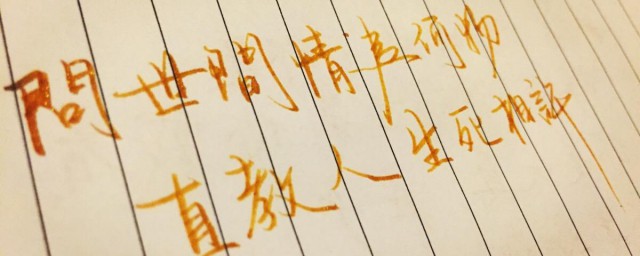 問世間情是何物
直教人生死相許